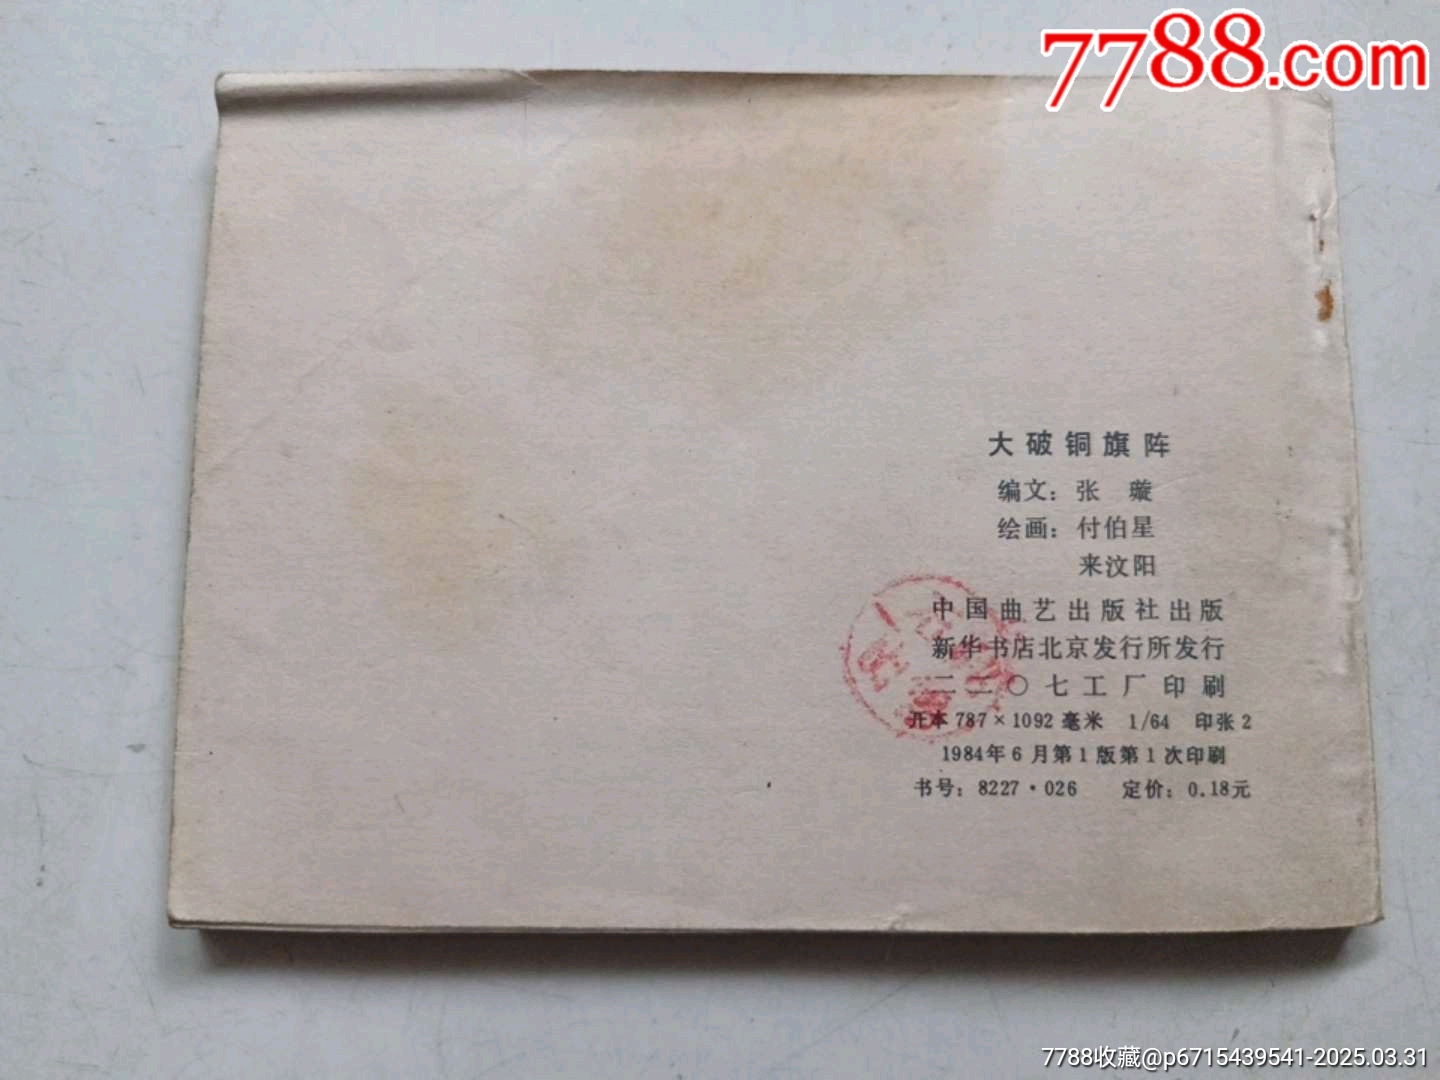 7788.com
大破铜旗阵
编文：张 璇
绘画：付伯星
来汶阳
中国曲艺出版社出版
新华书店北京发行所发行
二二〇七工厂印刷
开本 787×1092 毫米 1/64 印张 2
1984年6月第1版第1次印刷
书号：8227·026 定价：0.18元
7788收藏@p6715439541-2025.03.31